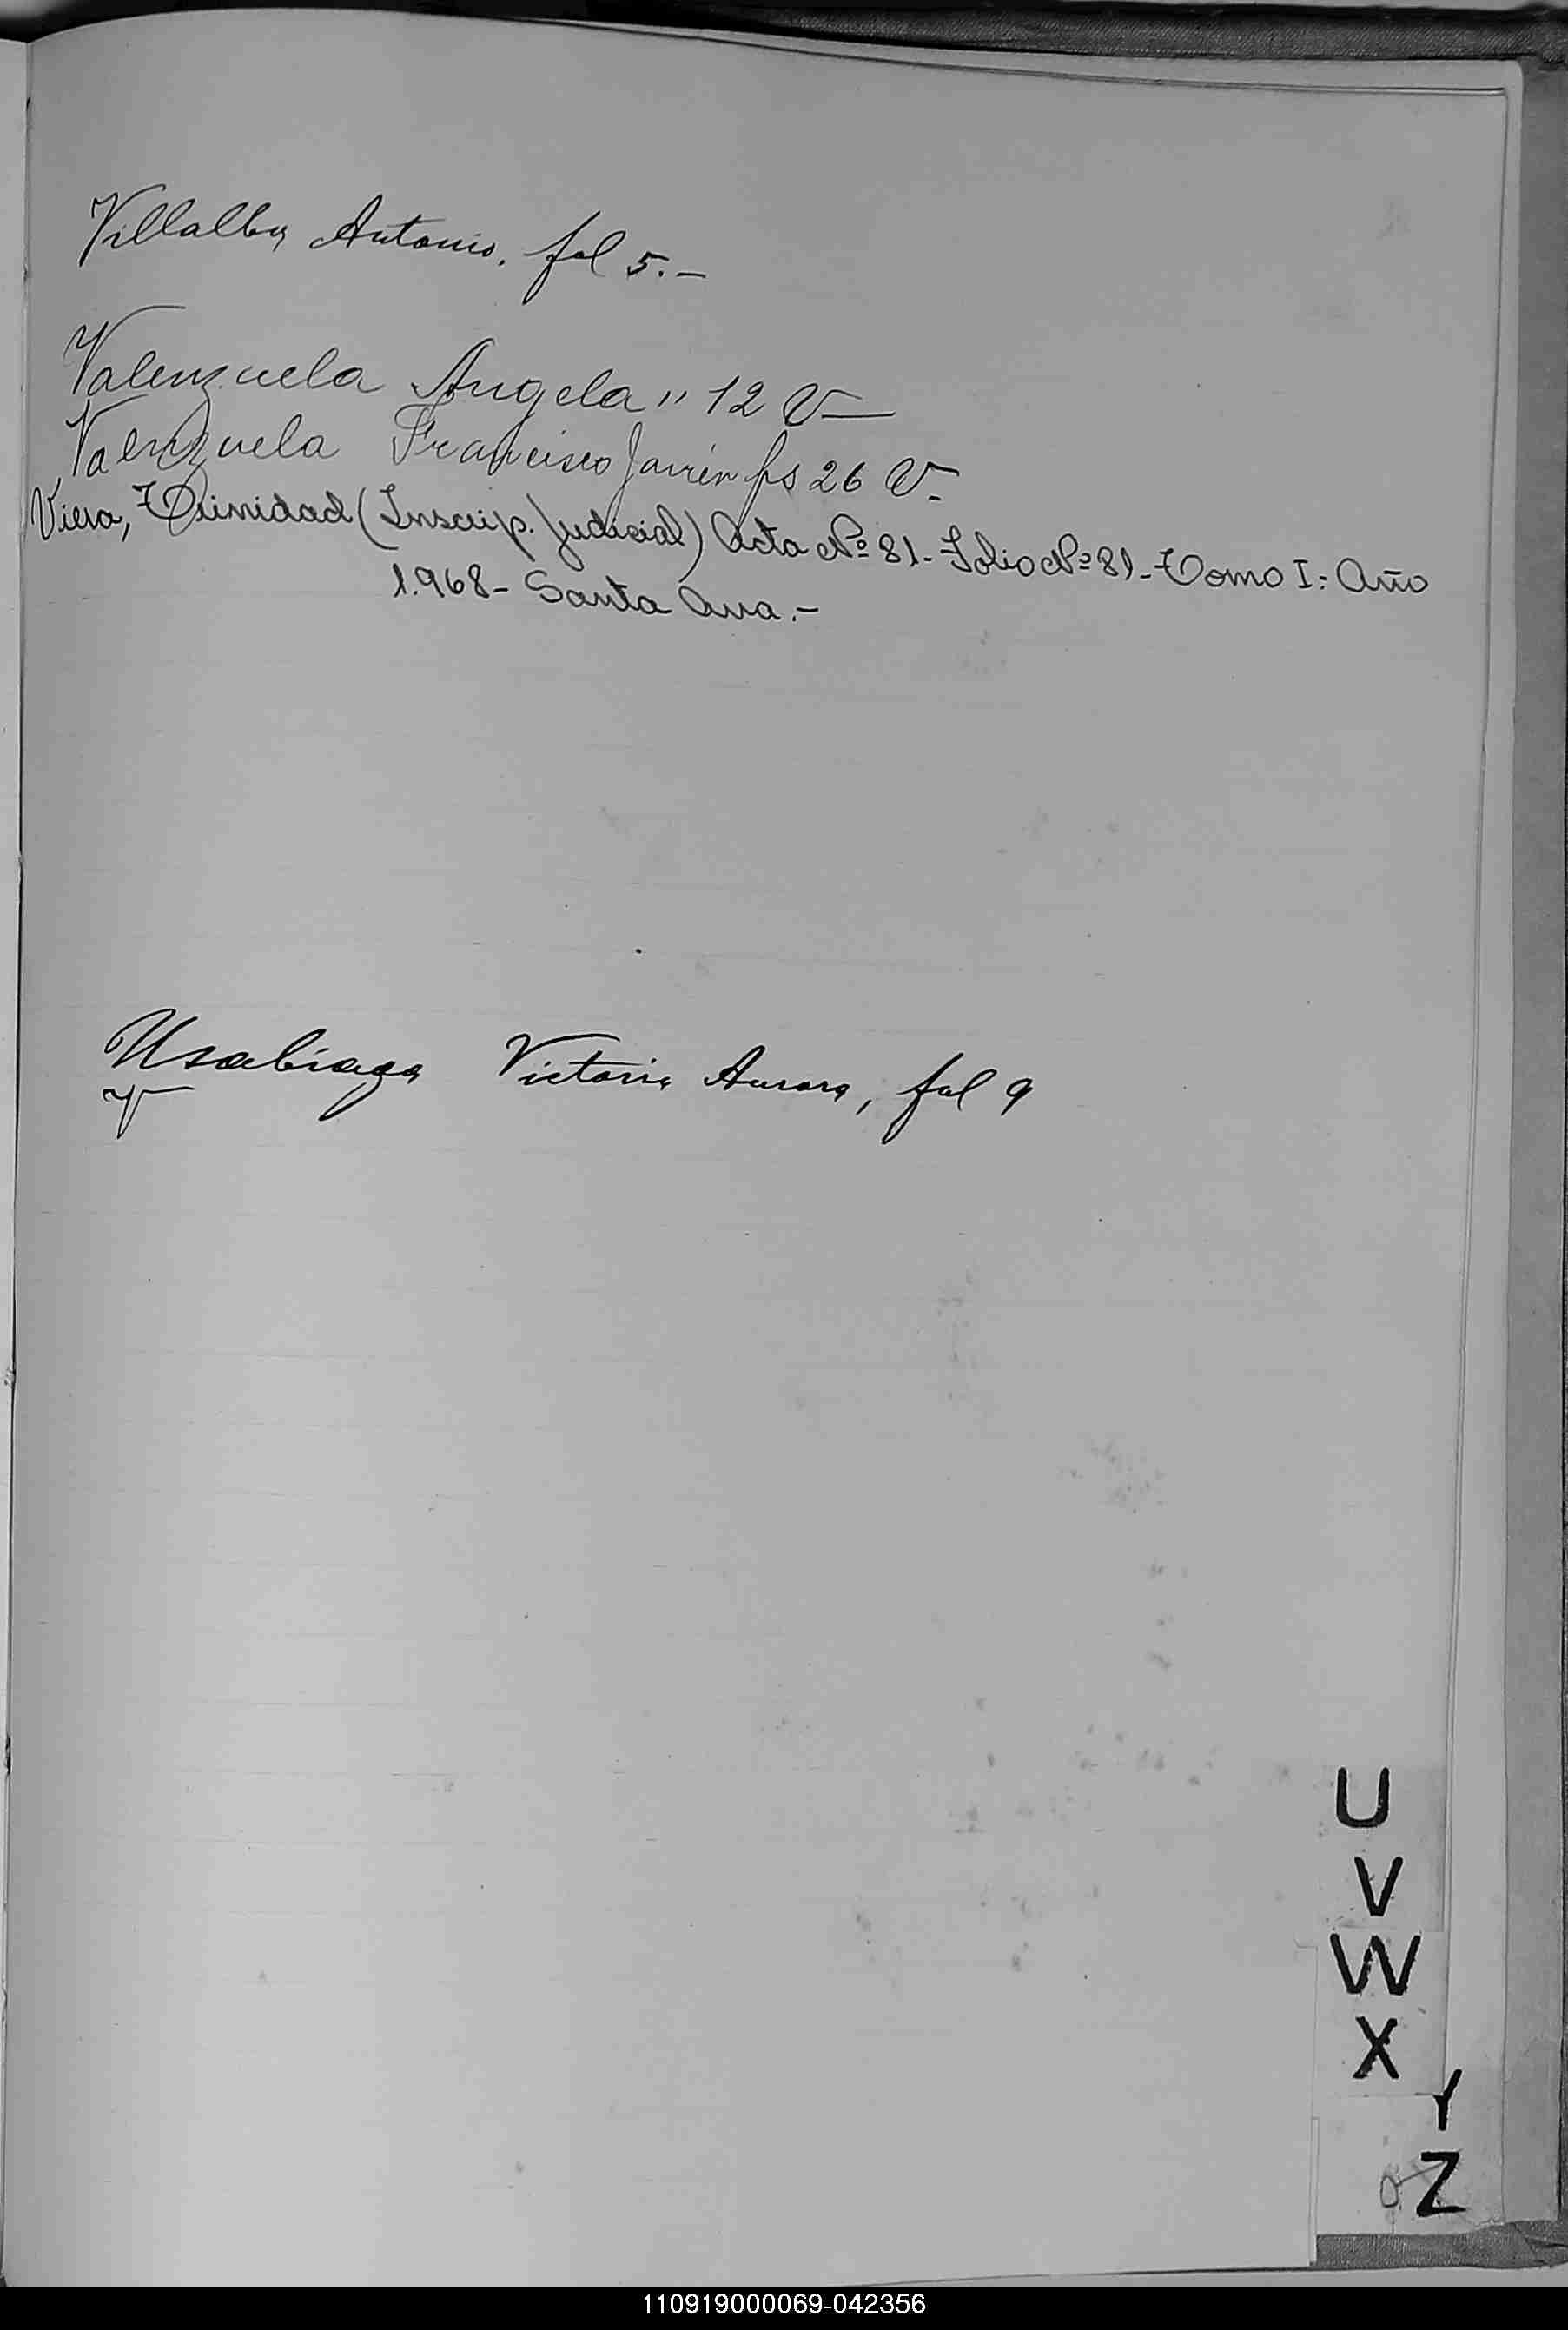 Villalba Antonio. fol 5.-
Valenzuela Angela " 12 V—
Valenzuela Francisco Javier fs 26 V.-
Viera, Trinidad (Inscrip. Judicial) Acta Nº 81- Folio Nº 81- Tomo I: Año
1.968- Santa Ana.-
Usabiaga Victoria Aurora, fol 9
U
V
W
X
Y
Z
110919000069-042356